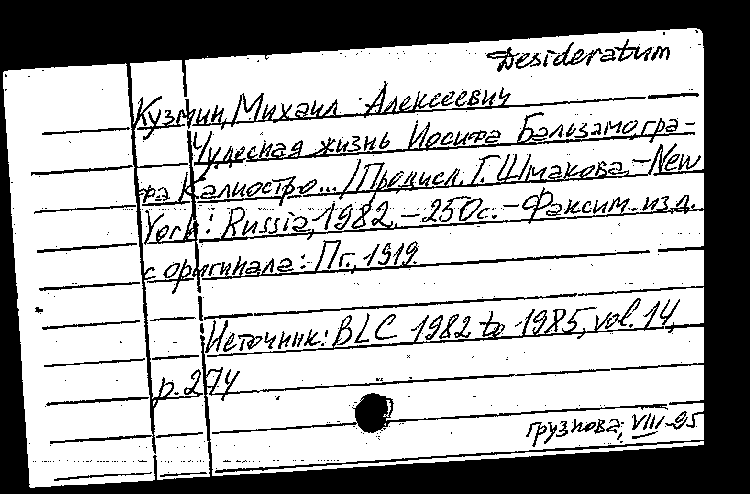 Desideratum
Кузмин, Михаил Алексеевич
Чудесная жизнь Иосифа Бальзамо, гра-
фа Калиостро... / Предисл. Г. Шмакова. - New
York: Russia, 1982. - 250 с. - Факсим. изд.
с оригинала: Пг., 1919.
Источник: BLC 1982 to 1985, vol. 14,
p. 274
Грузнова, VIII-95